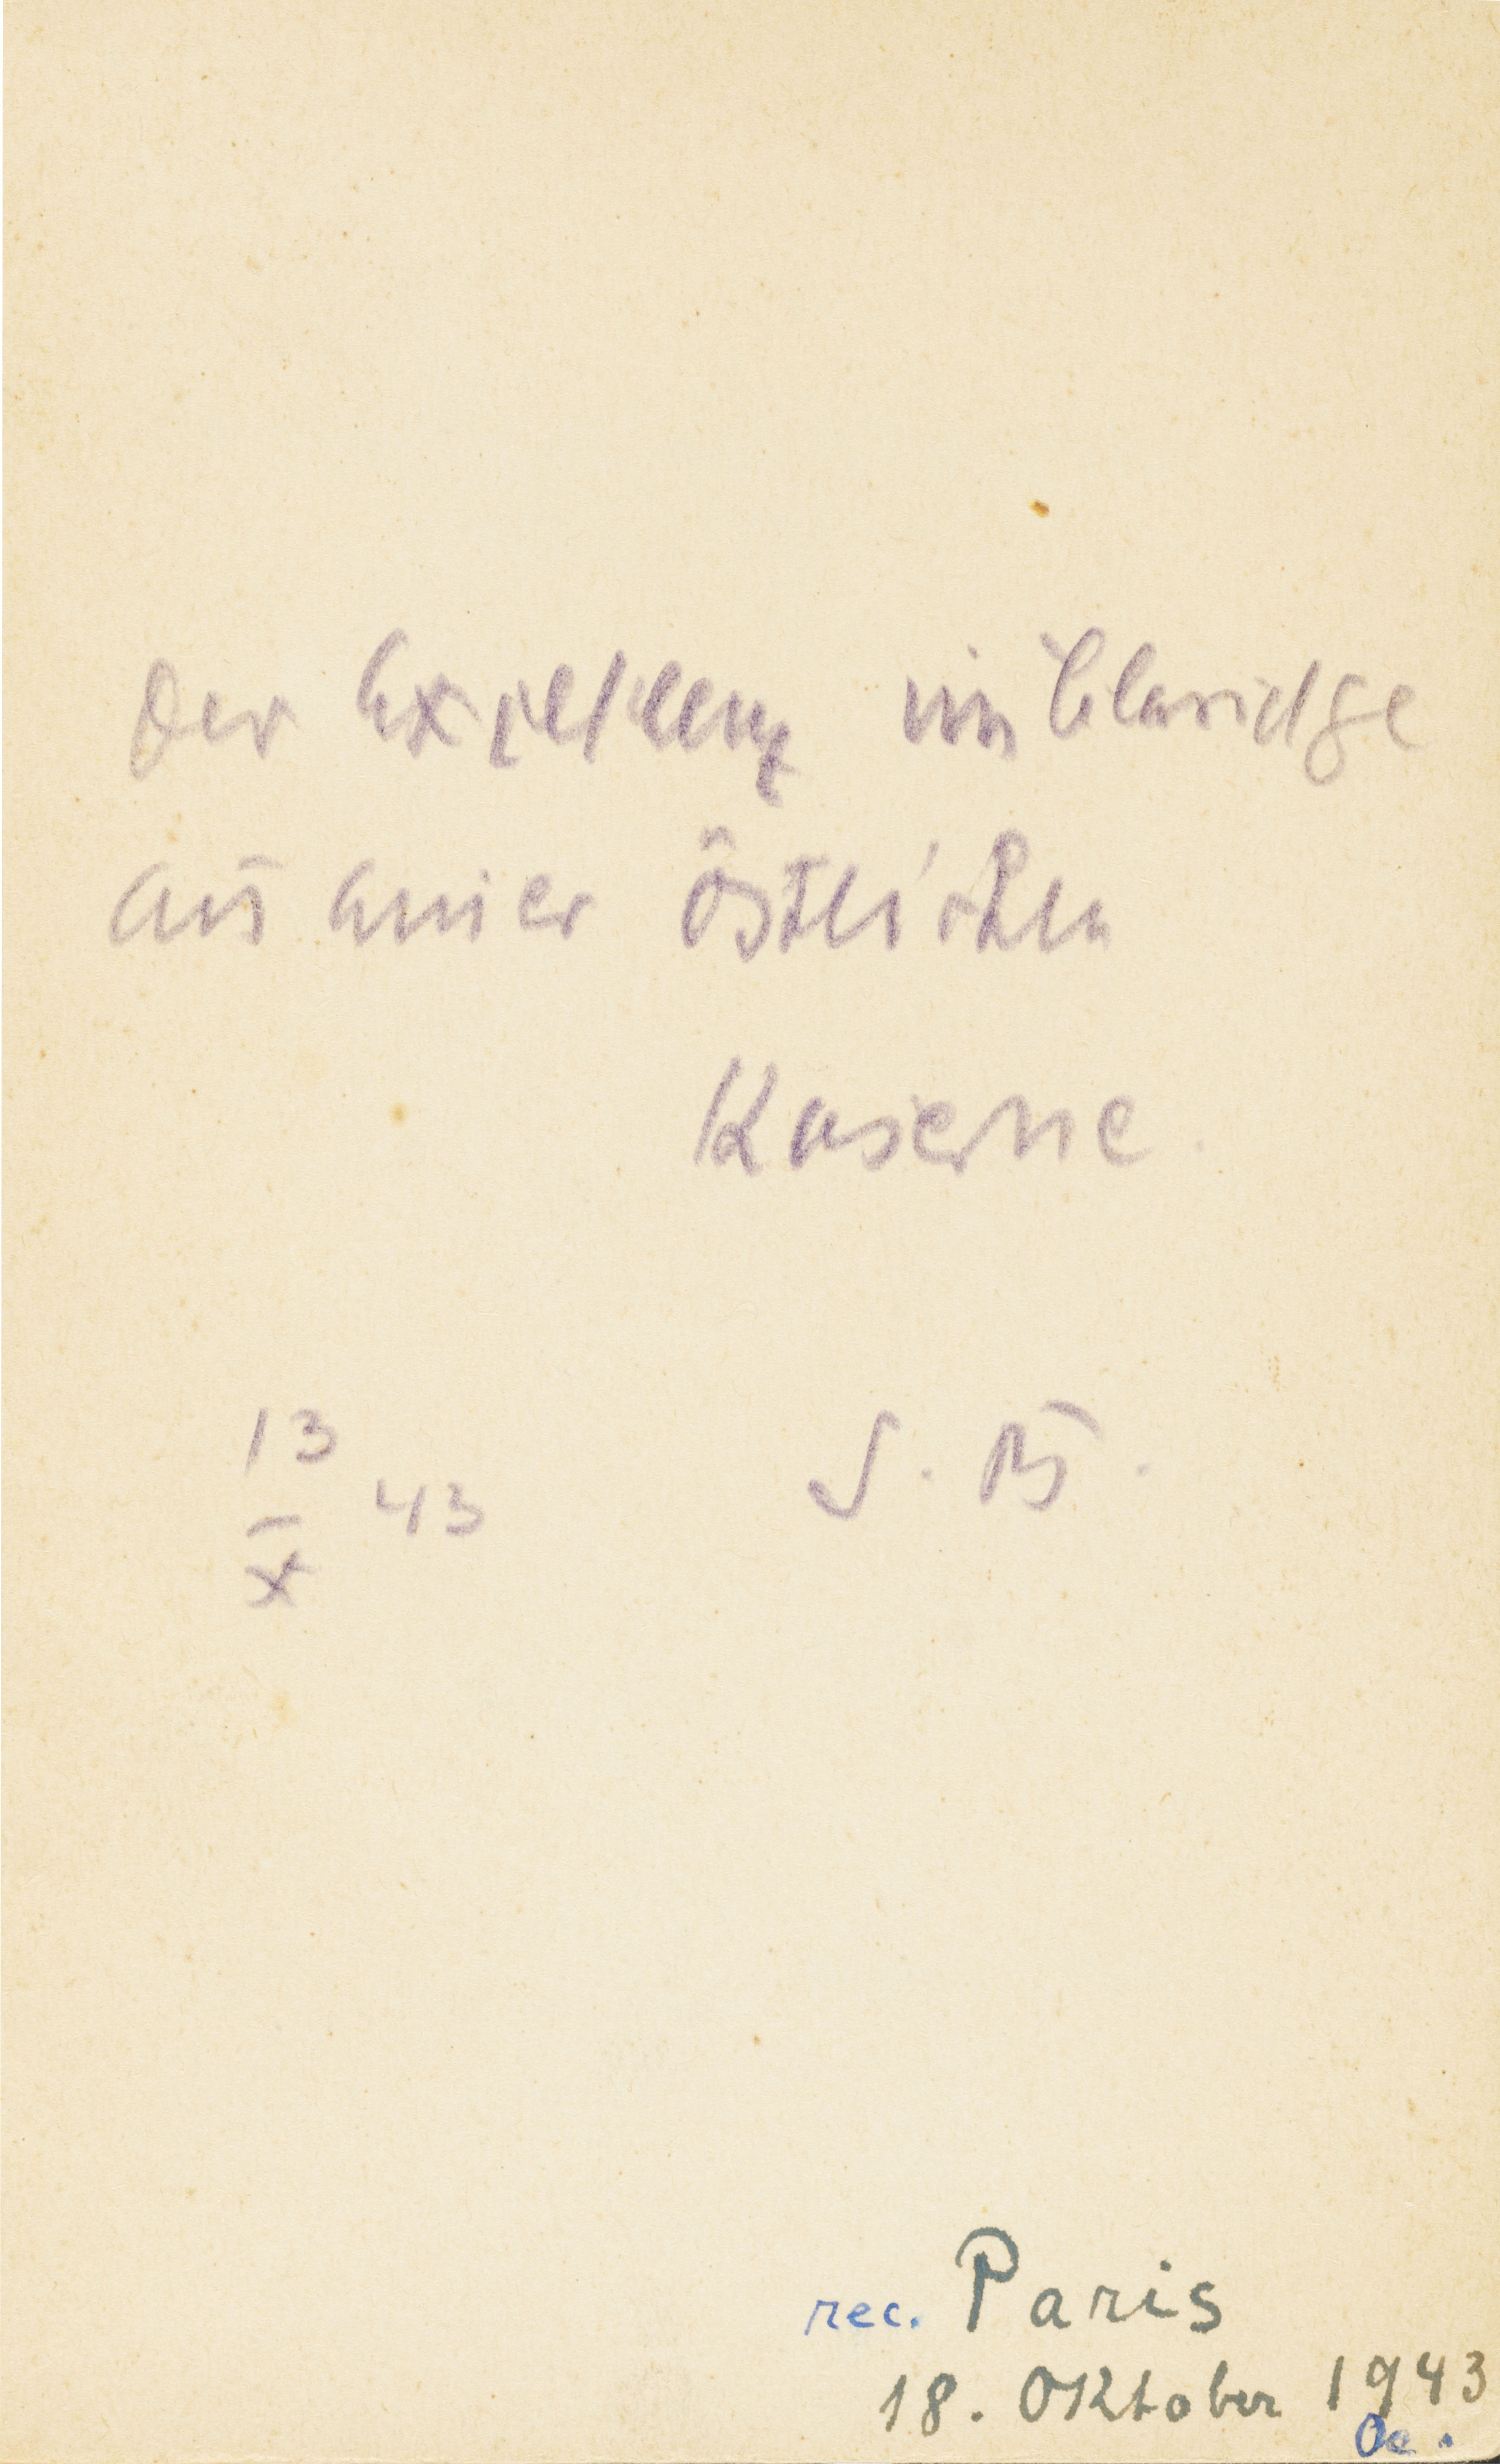 Der Exzellenz im Claridge
aus einer östlichen
Kaserne.
13
43
X
G. B.
rec. Paris
18. Oktober 1943
Oe.